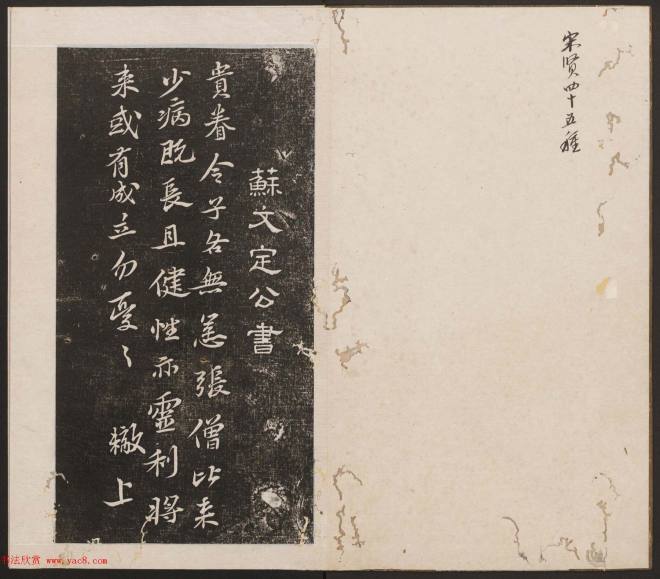 宋賢四十五種
蘇文定公書
貴眷令子各無恙張僧比来
少病既長且健性亦靈利將
来或有成立勿憂〻 轍上
书法欣赏 www.yac8.com